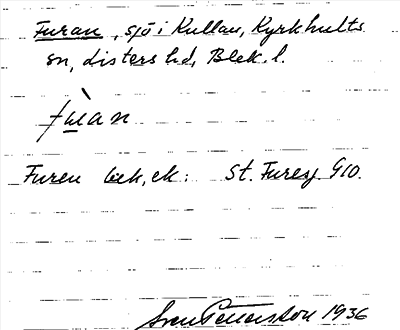 Furan, sjö i Kullan, Kyrkhults
sn, Listers hd, Blek. l.
fùran
Furen bek, ek: St. Furesj. G10.
Sven Petterson 1936